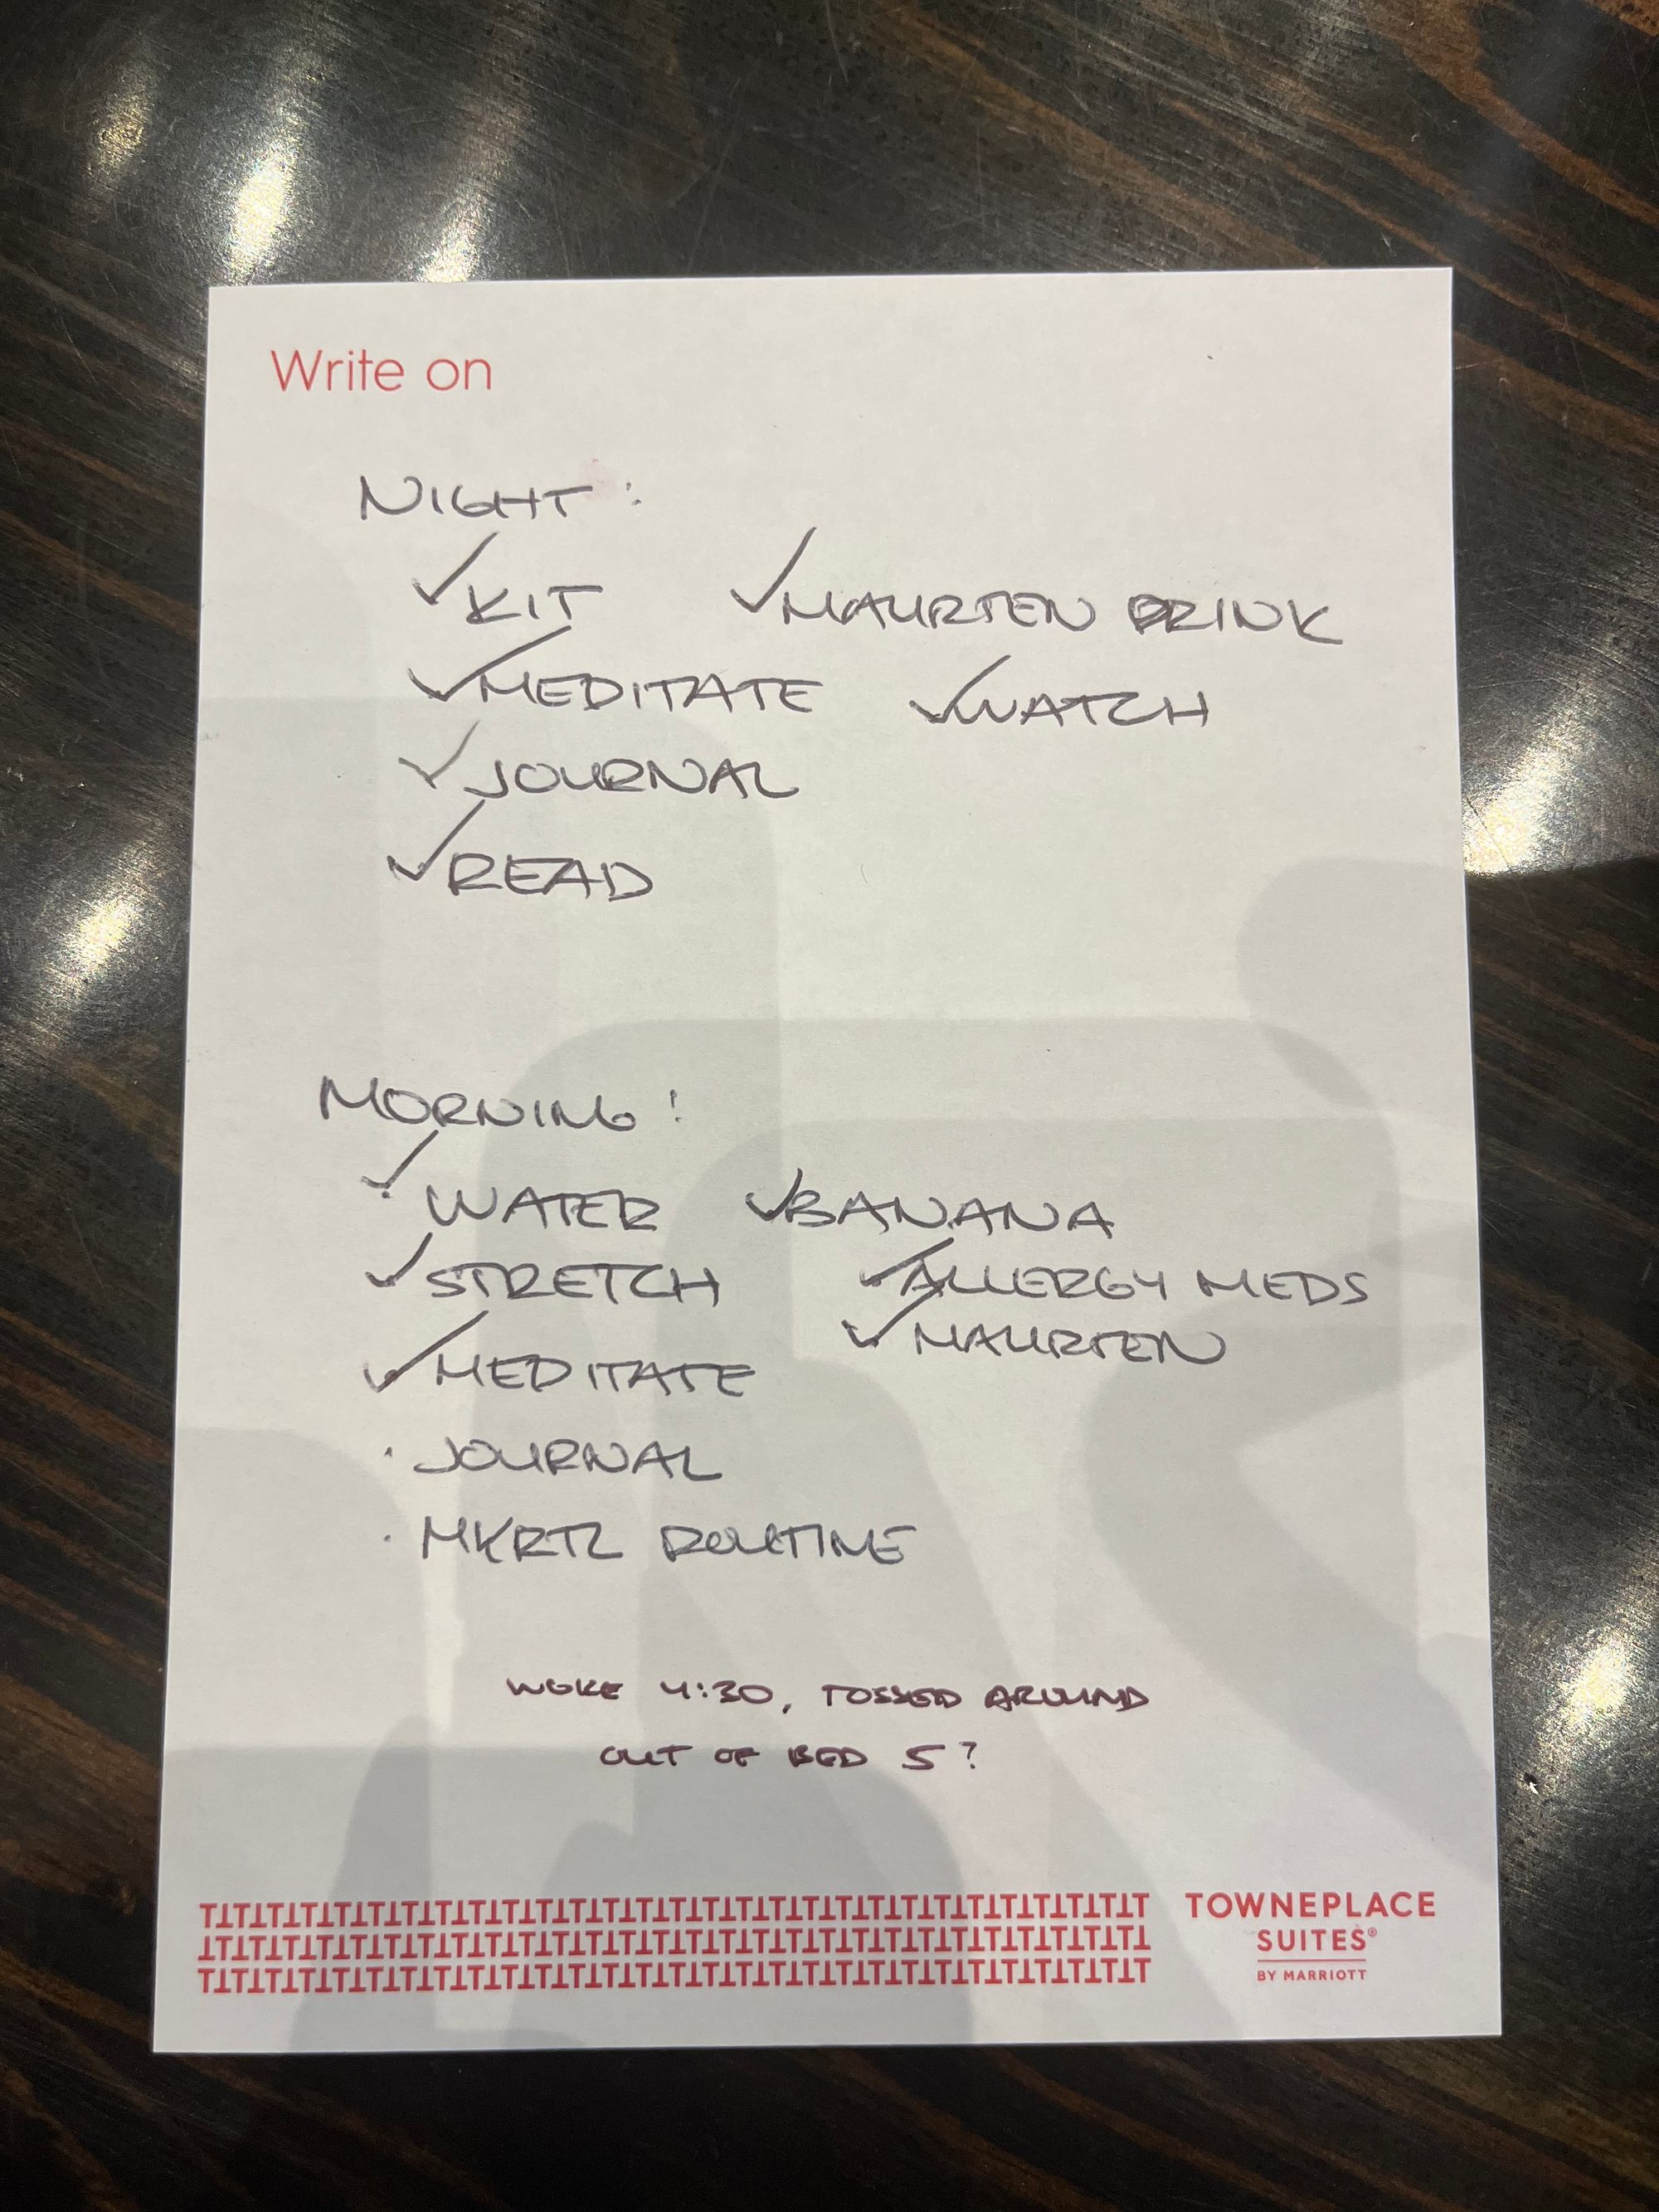 Write on
NIGHT:
✓KIT ✓MAURTEN DRINK
✓MEDITATE ✓WATCH
✓JOURNAL
✓READ
MORNING:
✓WATER ✓BANANA
✓STRETCH ✓ALLERGY MEDS
✓MAURTEN
✓MEDITATE
· JOURNAL
· MKRTL ROUTINE
WOKE 4:30, TOSSED AROUND
OUT OF BED 5?
TOWNEPLACE
SUITES®
BY MARRIOTT